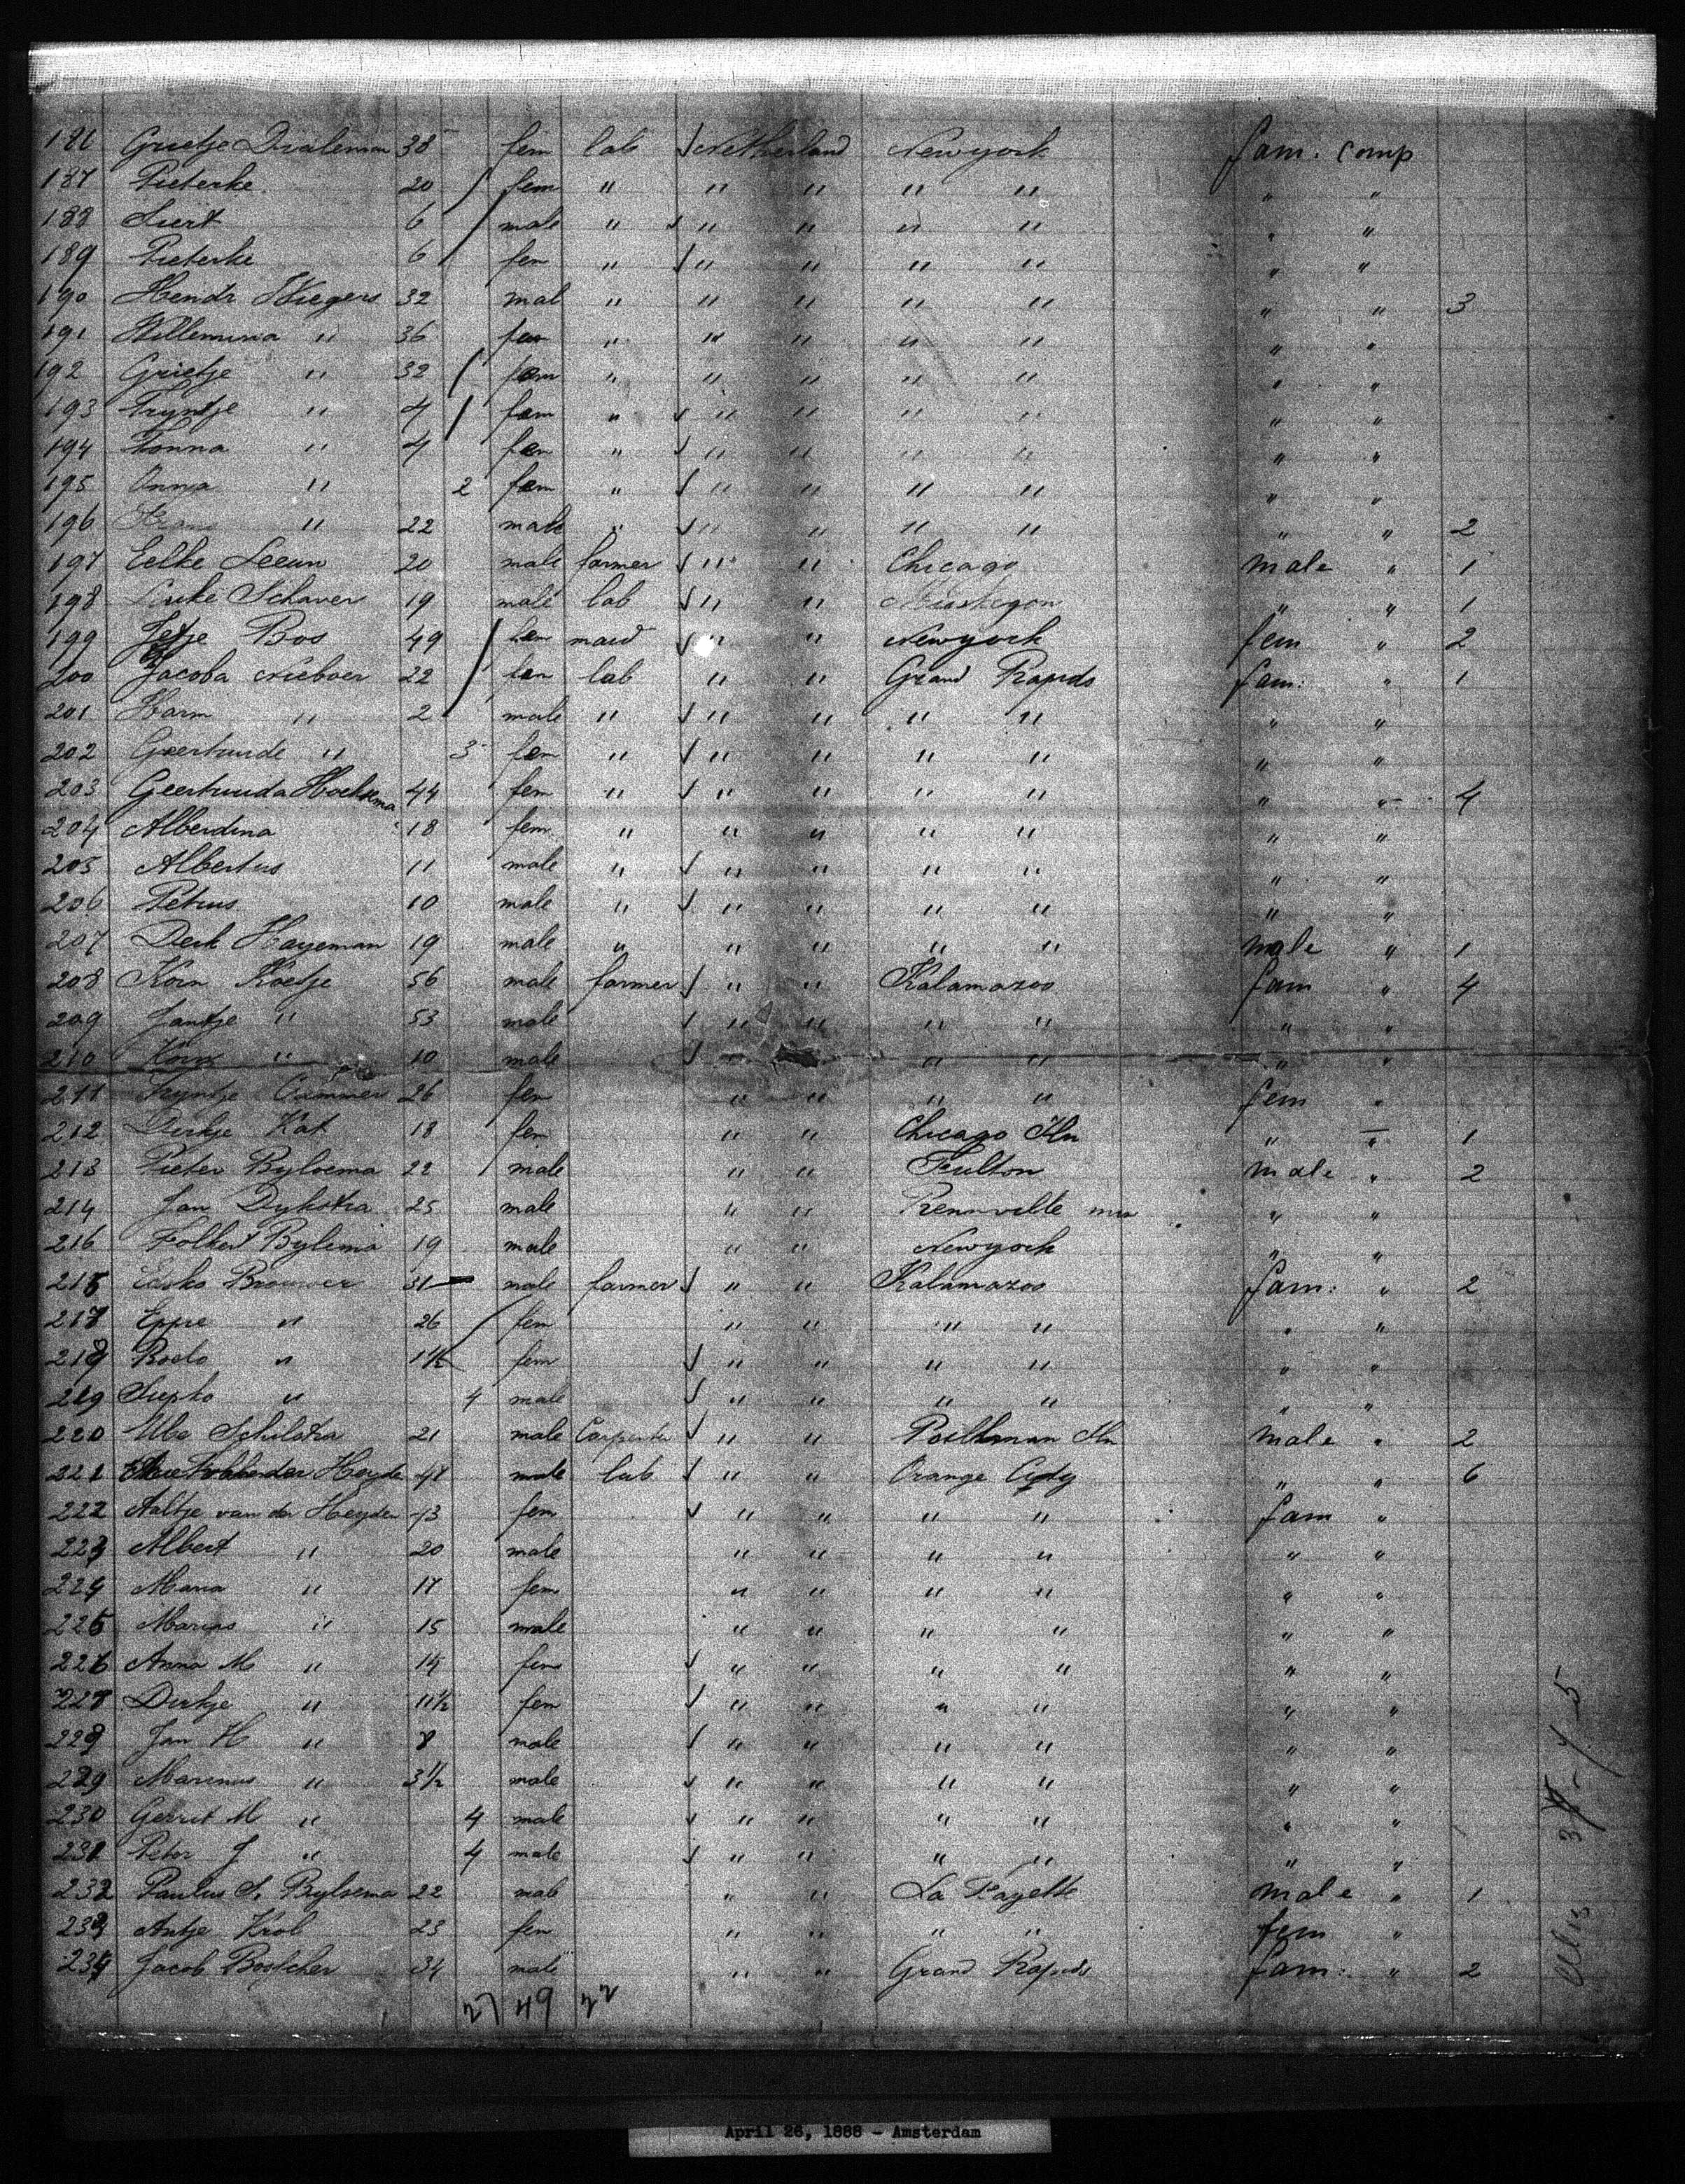 186 Grietje Draleman 38 fem lab Netherland Newyork fam: comp
187 Pieterke 20 fem " " " " " " "
188 Siert 6 male " " " " " " "
189 Pieterke 6 fem " " " " " " "
190 Hendr Wiegers 32 mal " " " " " " " 3
191 Willemina " 36 fem " " " " " " "
192 Grietje " 32 fem " " " " " " "
193 Tryntje " 4 fem " " " " " " "
194 " 4 fem " " " " " " "
195 Anna " 2 fem " " " " " " "
196 " 22 male " " " " " " " 2
197 Eelke Leeun 20 male farmer " " Chicago male " 1
198 Schaver 19 male lab " " Muskegon " " 1
199 Jetje Bos 49 fem maid " " Newyork fem " 2
200 Jacoba Nieboer 22 fem lab " " Grand Rapids fam: " 1
201 Harm " 2 male " " " " " " "
202 Geertruide " 3 fem " " " " " " "
203 Geertruida Hoeksema 44 fem " " " " " " " 4
204 Alberdina 18 fem " " " " " " "
205 Albertus 11 male " " " " " " "
206 Petrus 10 male " " " " " " "
207 Derk Hayeman 19 male " " " " " male " 1
208 Korn Koetje 56 male farmer " " Kalamazoo fam " 4
209 Jantje " 53 male " " " " " "
210 Korn " 10 male " " " " " "
211 Tryntje 26 fem " " " " fem "
212 Dirkje Kat 18 fem " " Chicago Iln " " 1
213 Pieter Bylsema 22 male " " Fulton male " 2
214 Jan Dykstra 25 male " " Rennville " "
216 Folkert Bylsma 19 male " " Newyork " "
215 Brouwer 31 male farmer " " Kalamazoo fam: " 2
217 Eppe " 26 fem " " " " " "
218 Roelo " 1½ fem " " " " " "
219 Siepko " 4 male " " " " " "
220 Ube Schilstra 21 male Carpenter " " Poilkman Iln male " 2
221 Heyde 48 male lab " " Orange City " " 6
222 Aaltje van der Heyden 43 fem " " " " fam "
223 Albert " 20 male " " " " " "
224 Maria " 17 fem " " " " " "
225 Marius " 15 male " " " " " "
226 Anna M " 14 fem " " " " " "
227 Dirkje " 11½ fem " " " " " "
228 Jan H " 8 male " " " " " "
229 Marinus " 3½ male " " " " " "
230 Gerrit M " 4 male " " " " " "
231 Peter J " 4 male " " " " " "
232 Paulus S. Bylsema 22 male " " La Fayette male " 1
233 Antje Krol 23 fem " " " " fem "
234 Jacob Bostcher 34 male " " Grand Rapids fam: " 2
27 49 22
April 26, 1888 - Amsterdam